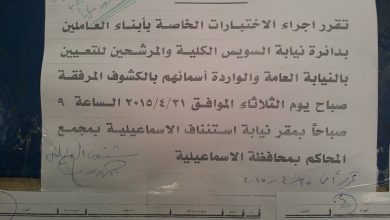 تقرر اجراء الاختبارات الخاصة بأبناء العاملين
بدائرة نيابة السويس الكلية والمرشحين للتعيين
بالنيابة العامة والواردة أسمائهم بالكشوف المرفقة
صباح يوم الثلاثاء الموافق ٢٠١٥/٤/٢١ الساعة ٩
صباحاً بمقر نيابة استئناف الاسماعيلية بمجمع
المحاكم بمحافظة الاسماعيلية